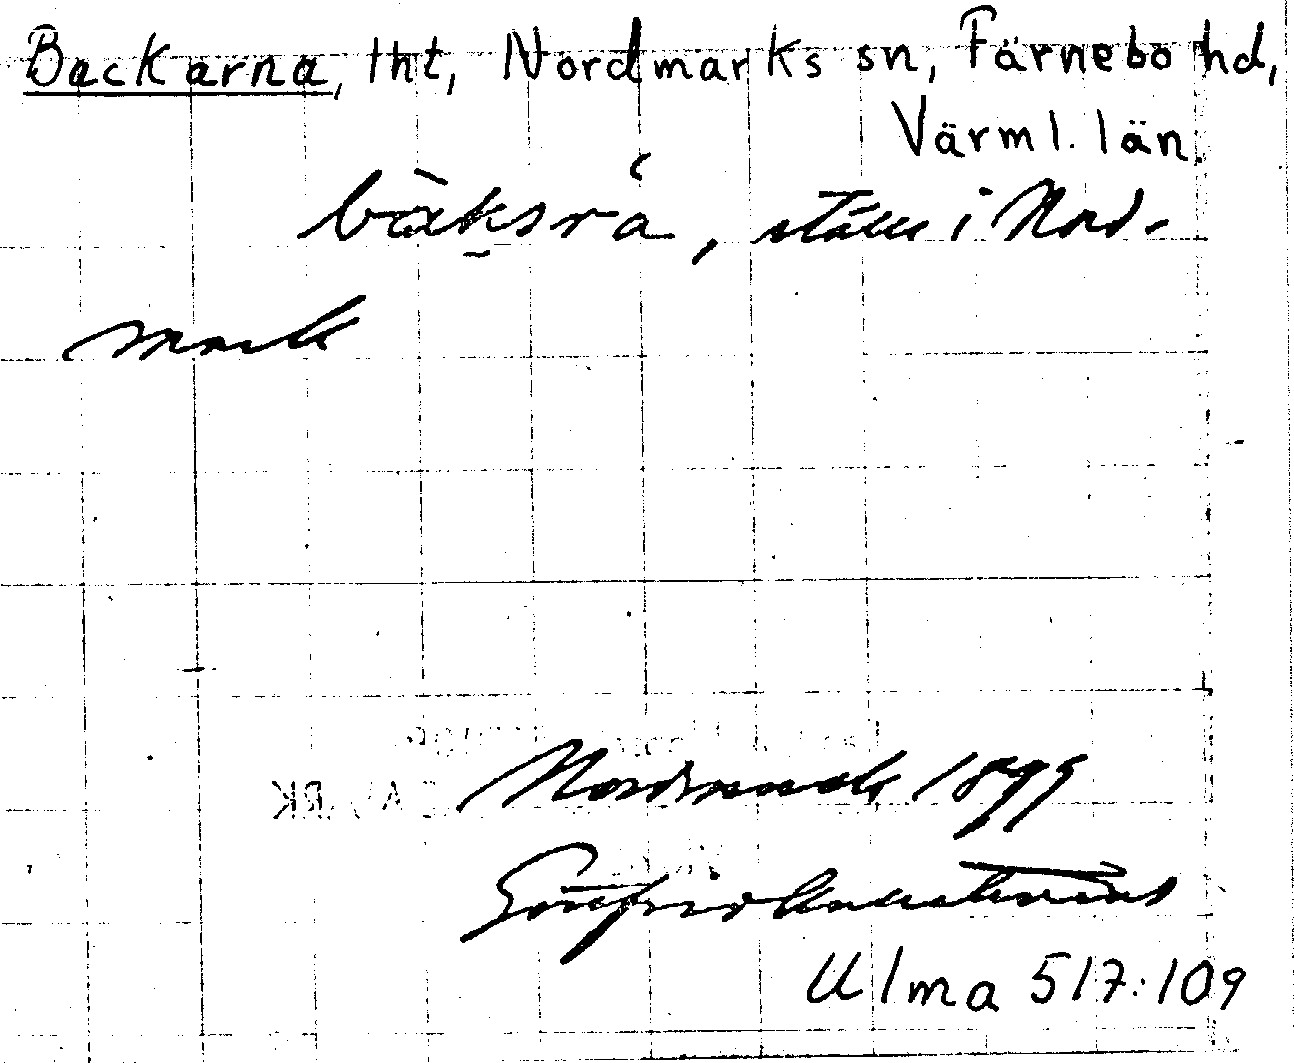 Backarna, tht, Nordmarks sn, Färnebo hd,
Värml. län.
ställe i Nord-
mark
Nordmark 1899
Gottfrid Kallstenius
Ulma 517:109